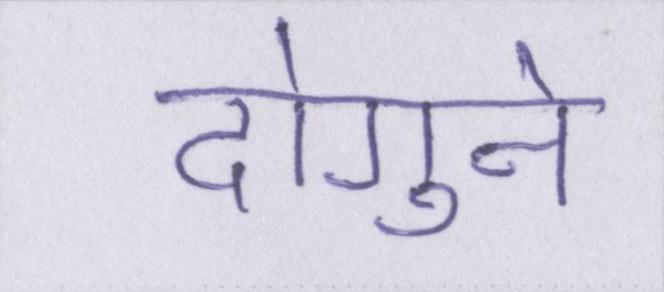 दोगुने